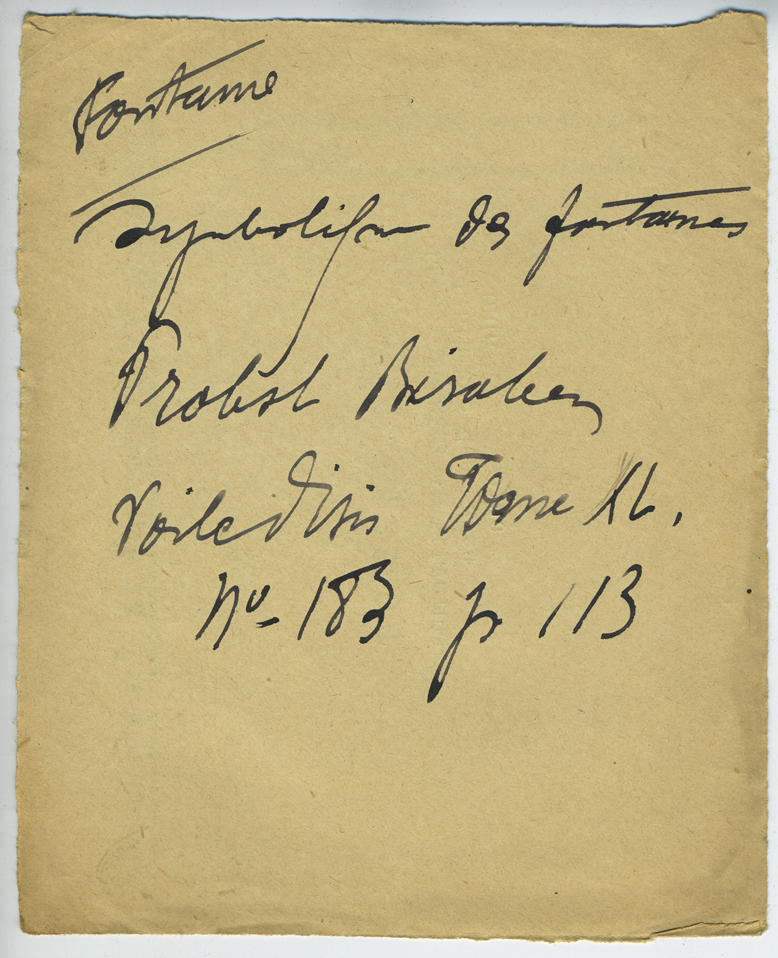 Fontaine
Symbolisme des fontaines
Probst Biraben
Voile d'Isis Tome XL.
No 183 p 113